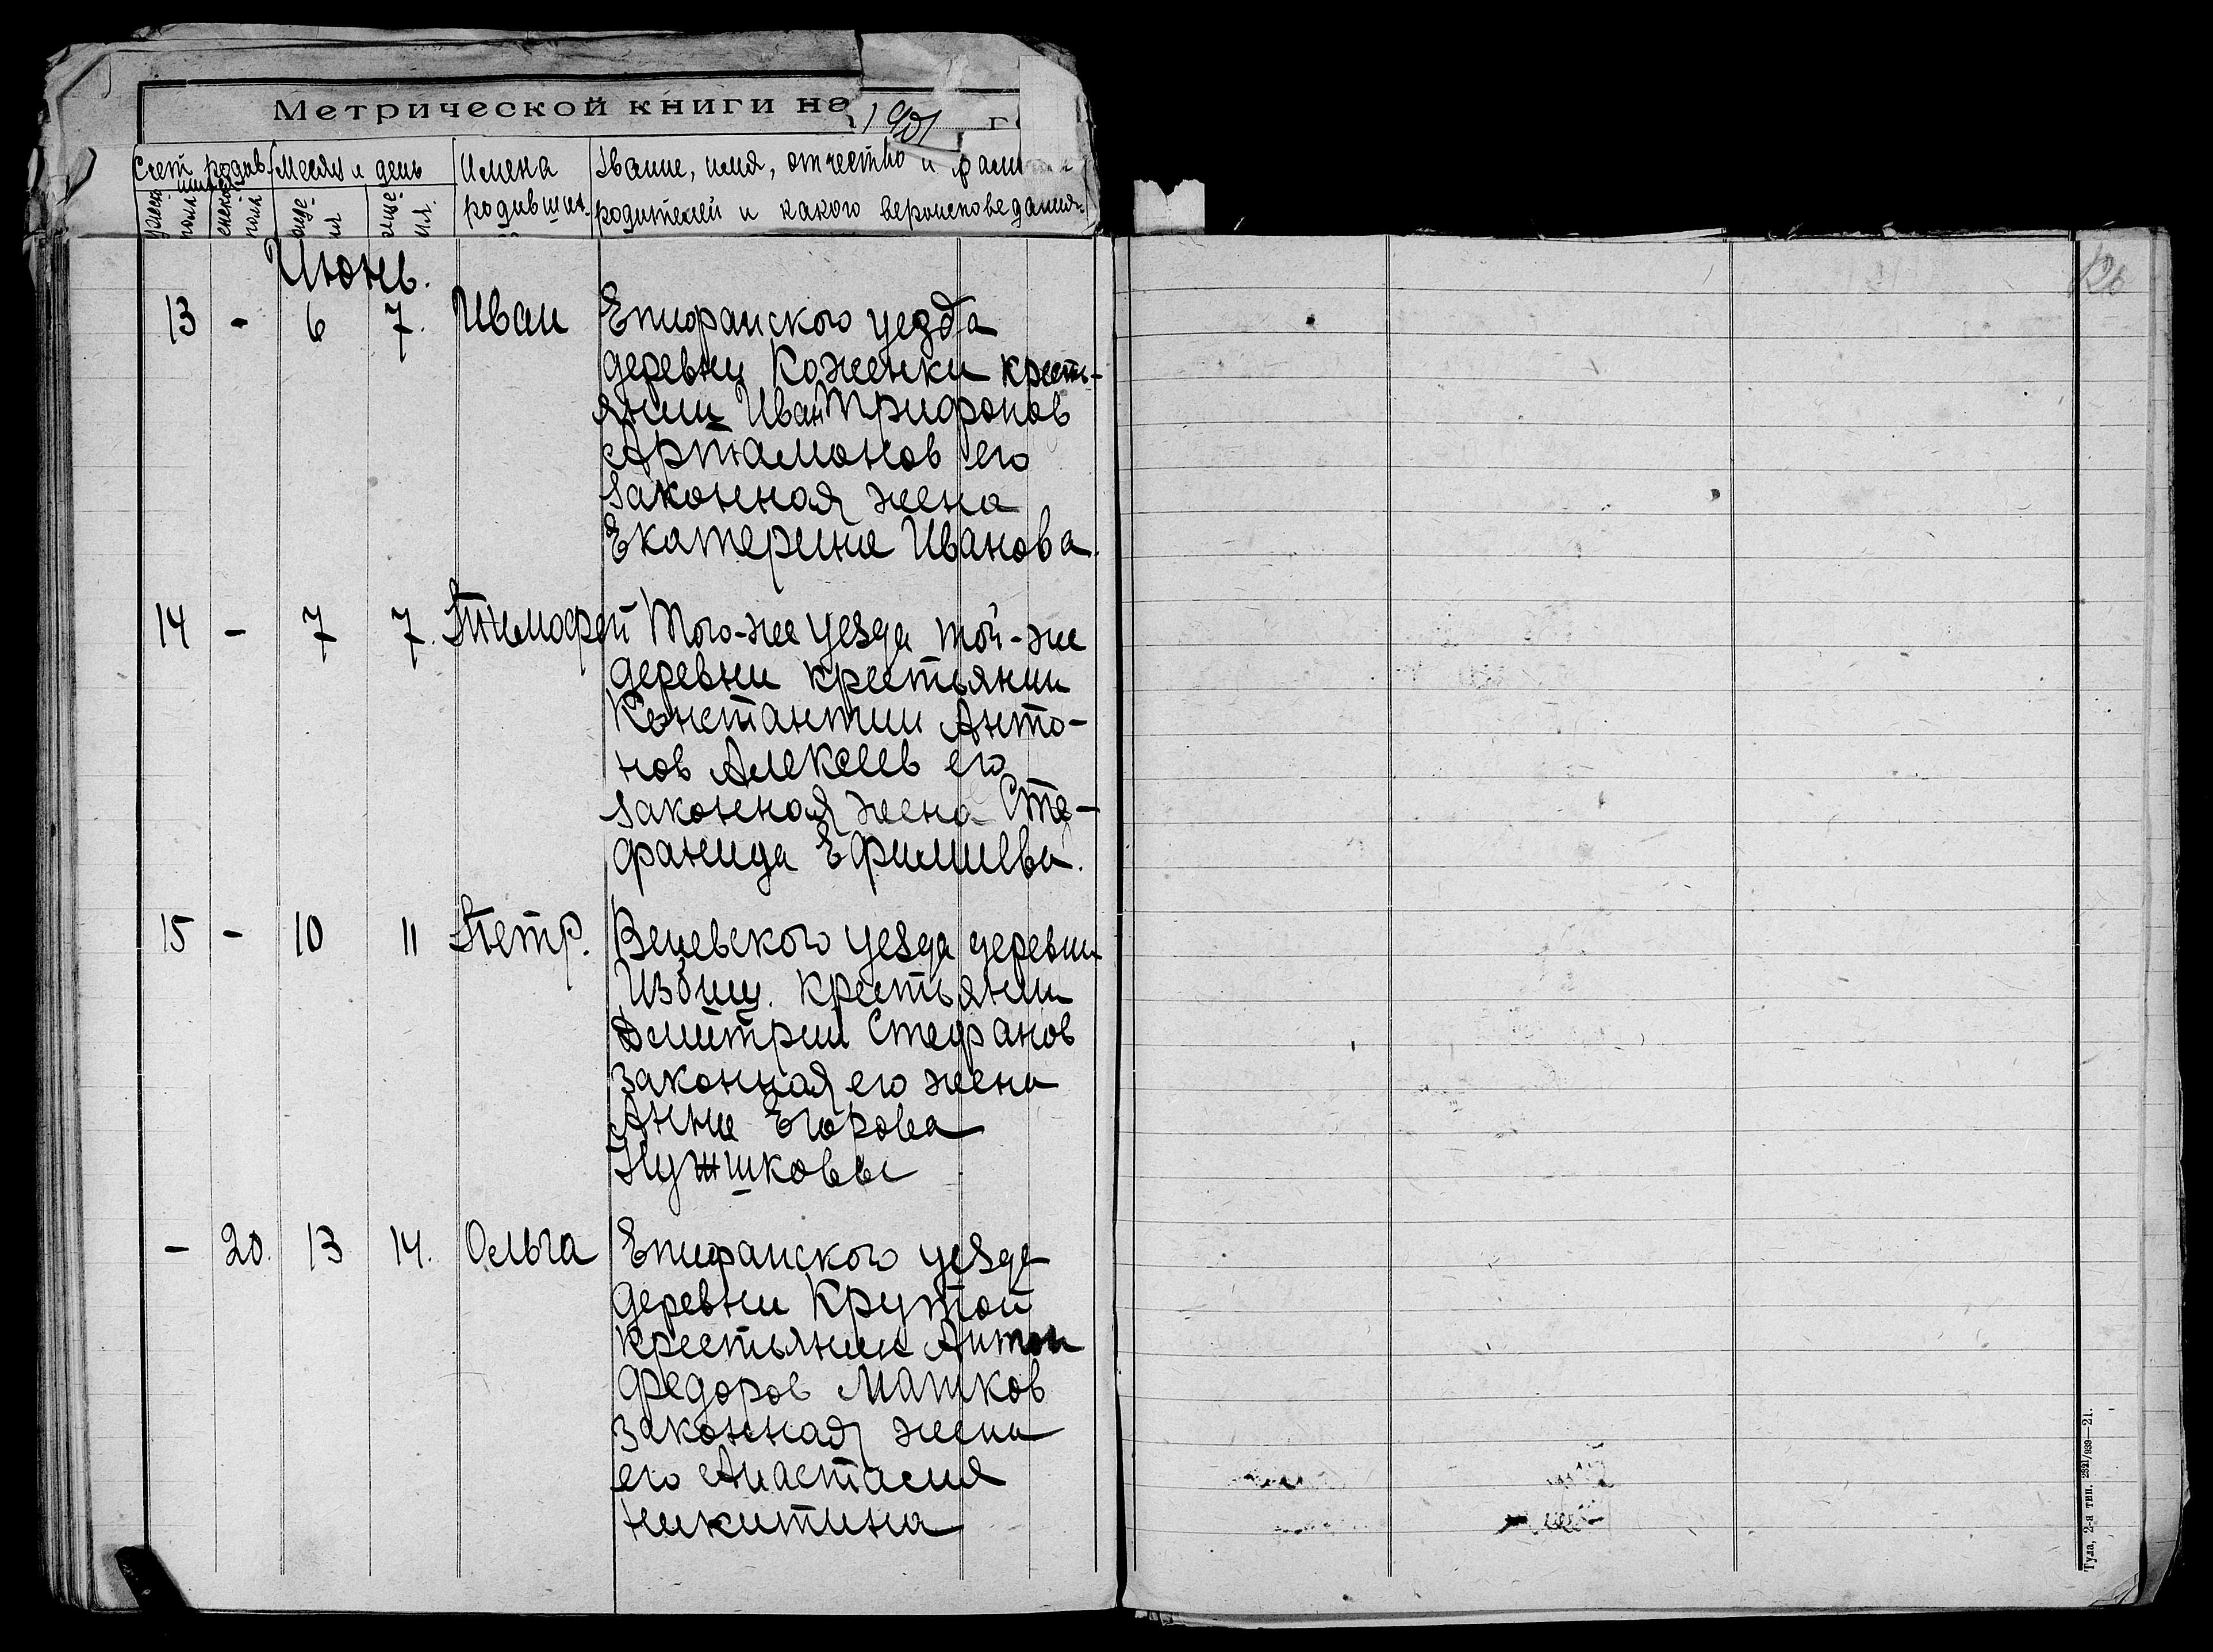 Метрической книги на 1921
Счет родив. Месяц и день Имена Звание, имя, отчество и
шихся родивших. родителей и какого вероисповедания.
пола пола
126
Июнь.
13 - 6 7. Иван Епифанского уезда
деревни Коженки кресть-
янин Иван Трифонов
Артамонов его
законная жена
Екатерина Иванова.
14 - 7 7. Тимофей Того-же уезда той-же
деревни крестьянин
Константин Анто-
нов Алексеев его
законная жена Сте-
фанида Ефимиева.
15 - 10 11 Петр. Веневского уезда деревни
Избищ. крестьянин
Дмитрий Стефанов
законная его жена
Анна Егорова
- 20. 13 14. Ольга Епифанского уезда
деревни Крутой
крестьянин Антон
Федоров Матков
законная жена
его Анастасия
Никитина
Тула, 2-я тип. 2321/939—21.